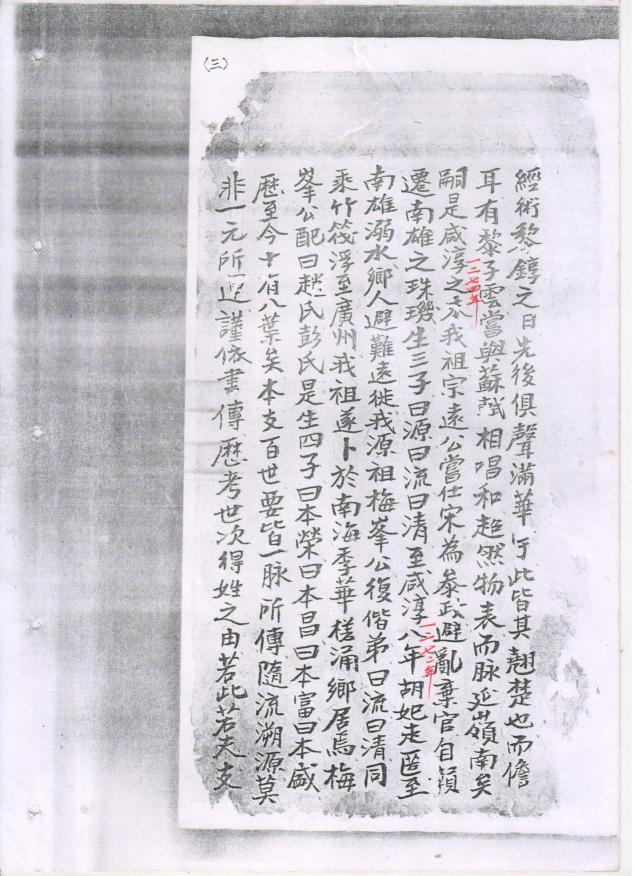 (三)
經術黎錞之日先後俱聲滿華宇此皆其翹楚也而儋
耳有黎子雲嘗與蘇軾相唱和超然物表而脉延嶺南矣
嗣是咸淳之六我祖宗遠公嘗仕宋為叅政避亂棄官自嶺
一二七四年
遷南雄之珠璣生三子曰源曰流曰清至咸淳八年胡妃走匿至
一二七二年
南雄溺水鄉人避難遠徙我源祖梅峯公復偕弟曰流曰清同
乘竹筏浮至廣州我祖遂卜於南海季華槎涌鄉居焉梅
峯公配曰趙氏彭氏是生四子曰本榮曰本昌曰本富曰本盛
歷至今十有八葉矣本支百世要皆一脉所傳隨流溯源莫
非一元所運謹依書傳歷考世次得姓之由若此若夫支